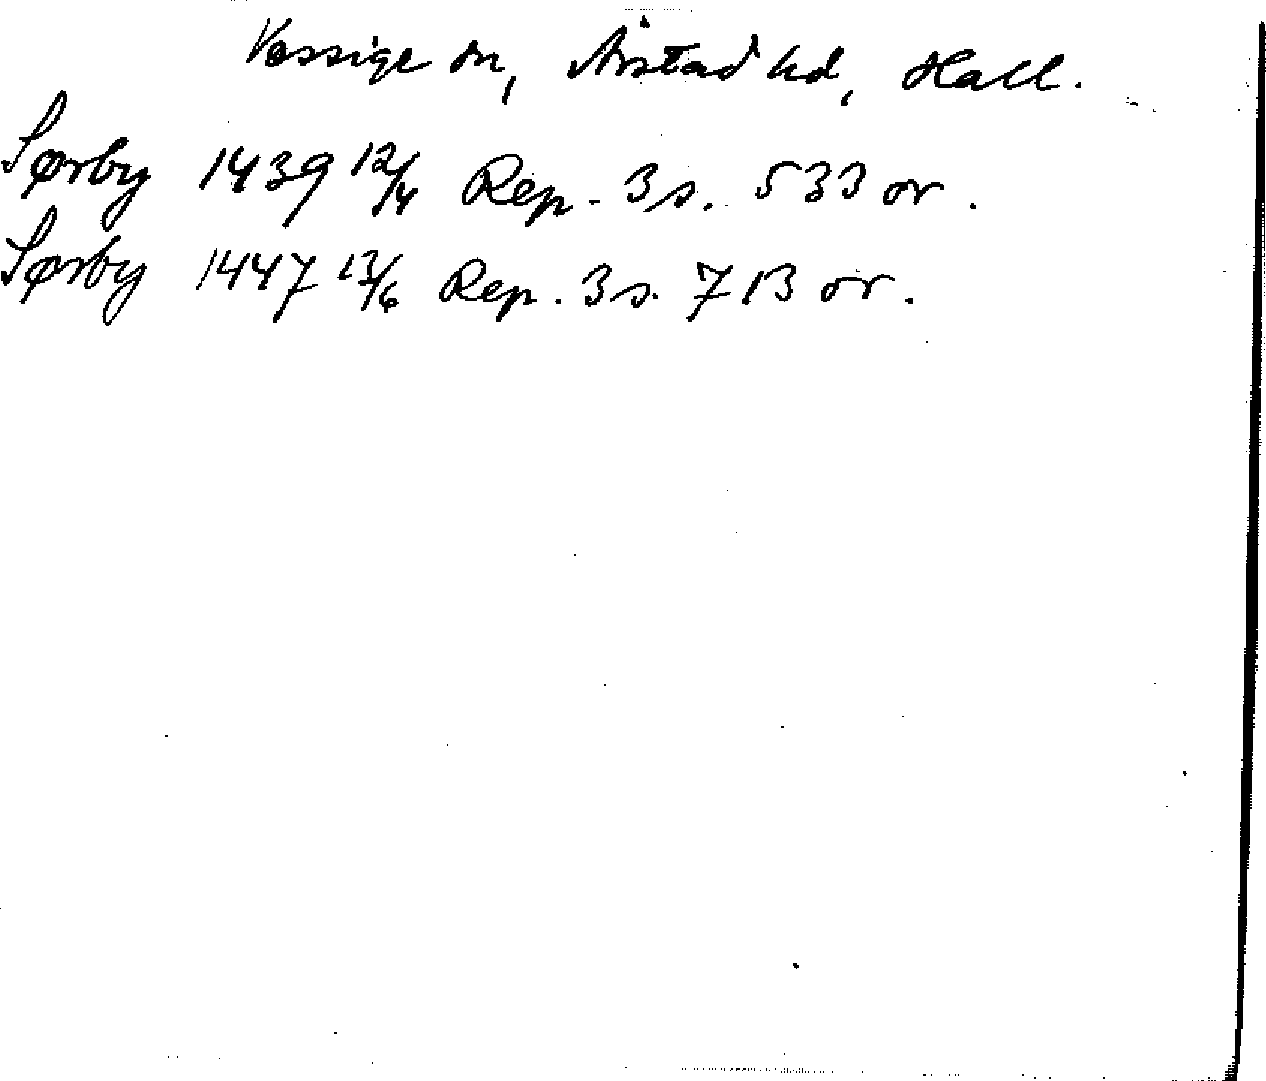 Vessige sn, Årstad hd, Hall.
Sørby 1439 12/4 Rep. 3 s. 533 or.
Sørby 1447 13/6 Rep. 3 s. 713 or.